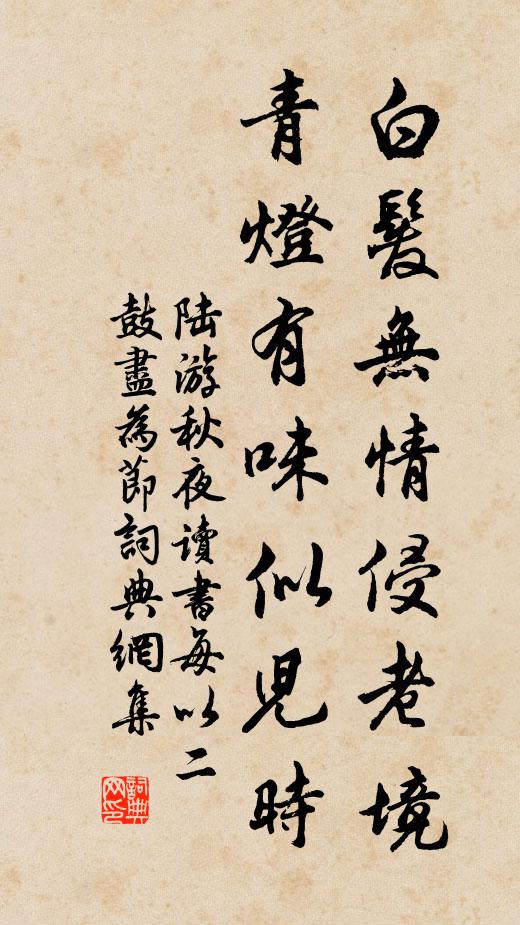 白髮無情侵老境
青燈有味似兒時
陆游秋夜讀書每以二
鼓盡為節詞典網集
詞典
网印